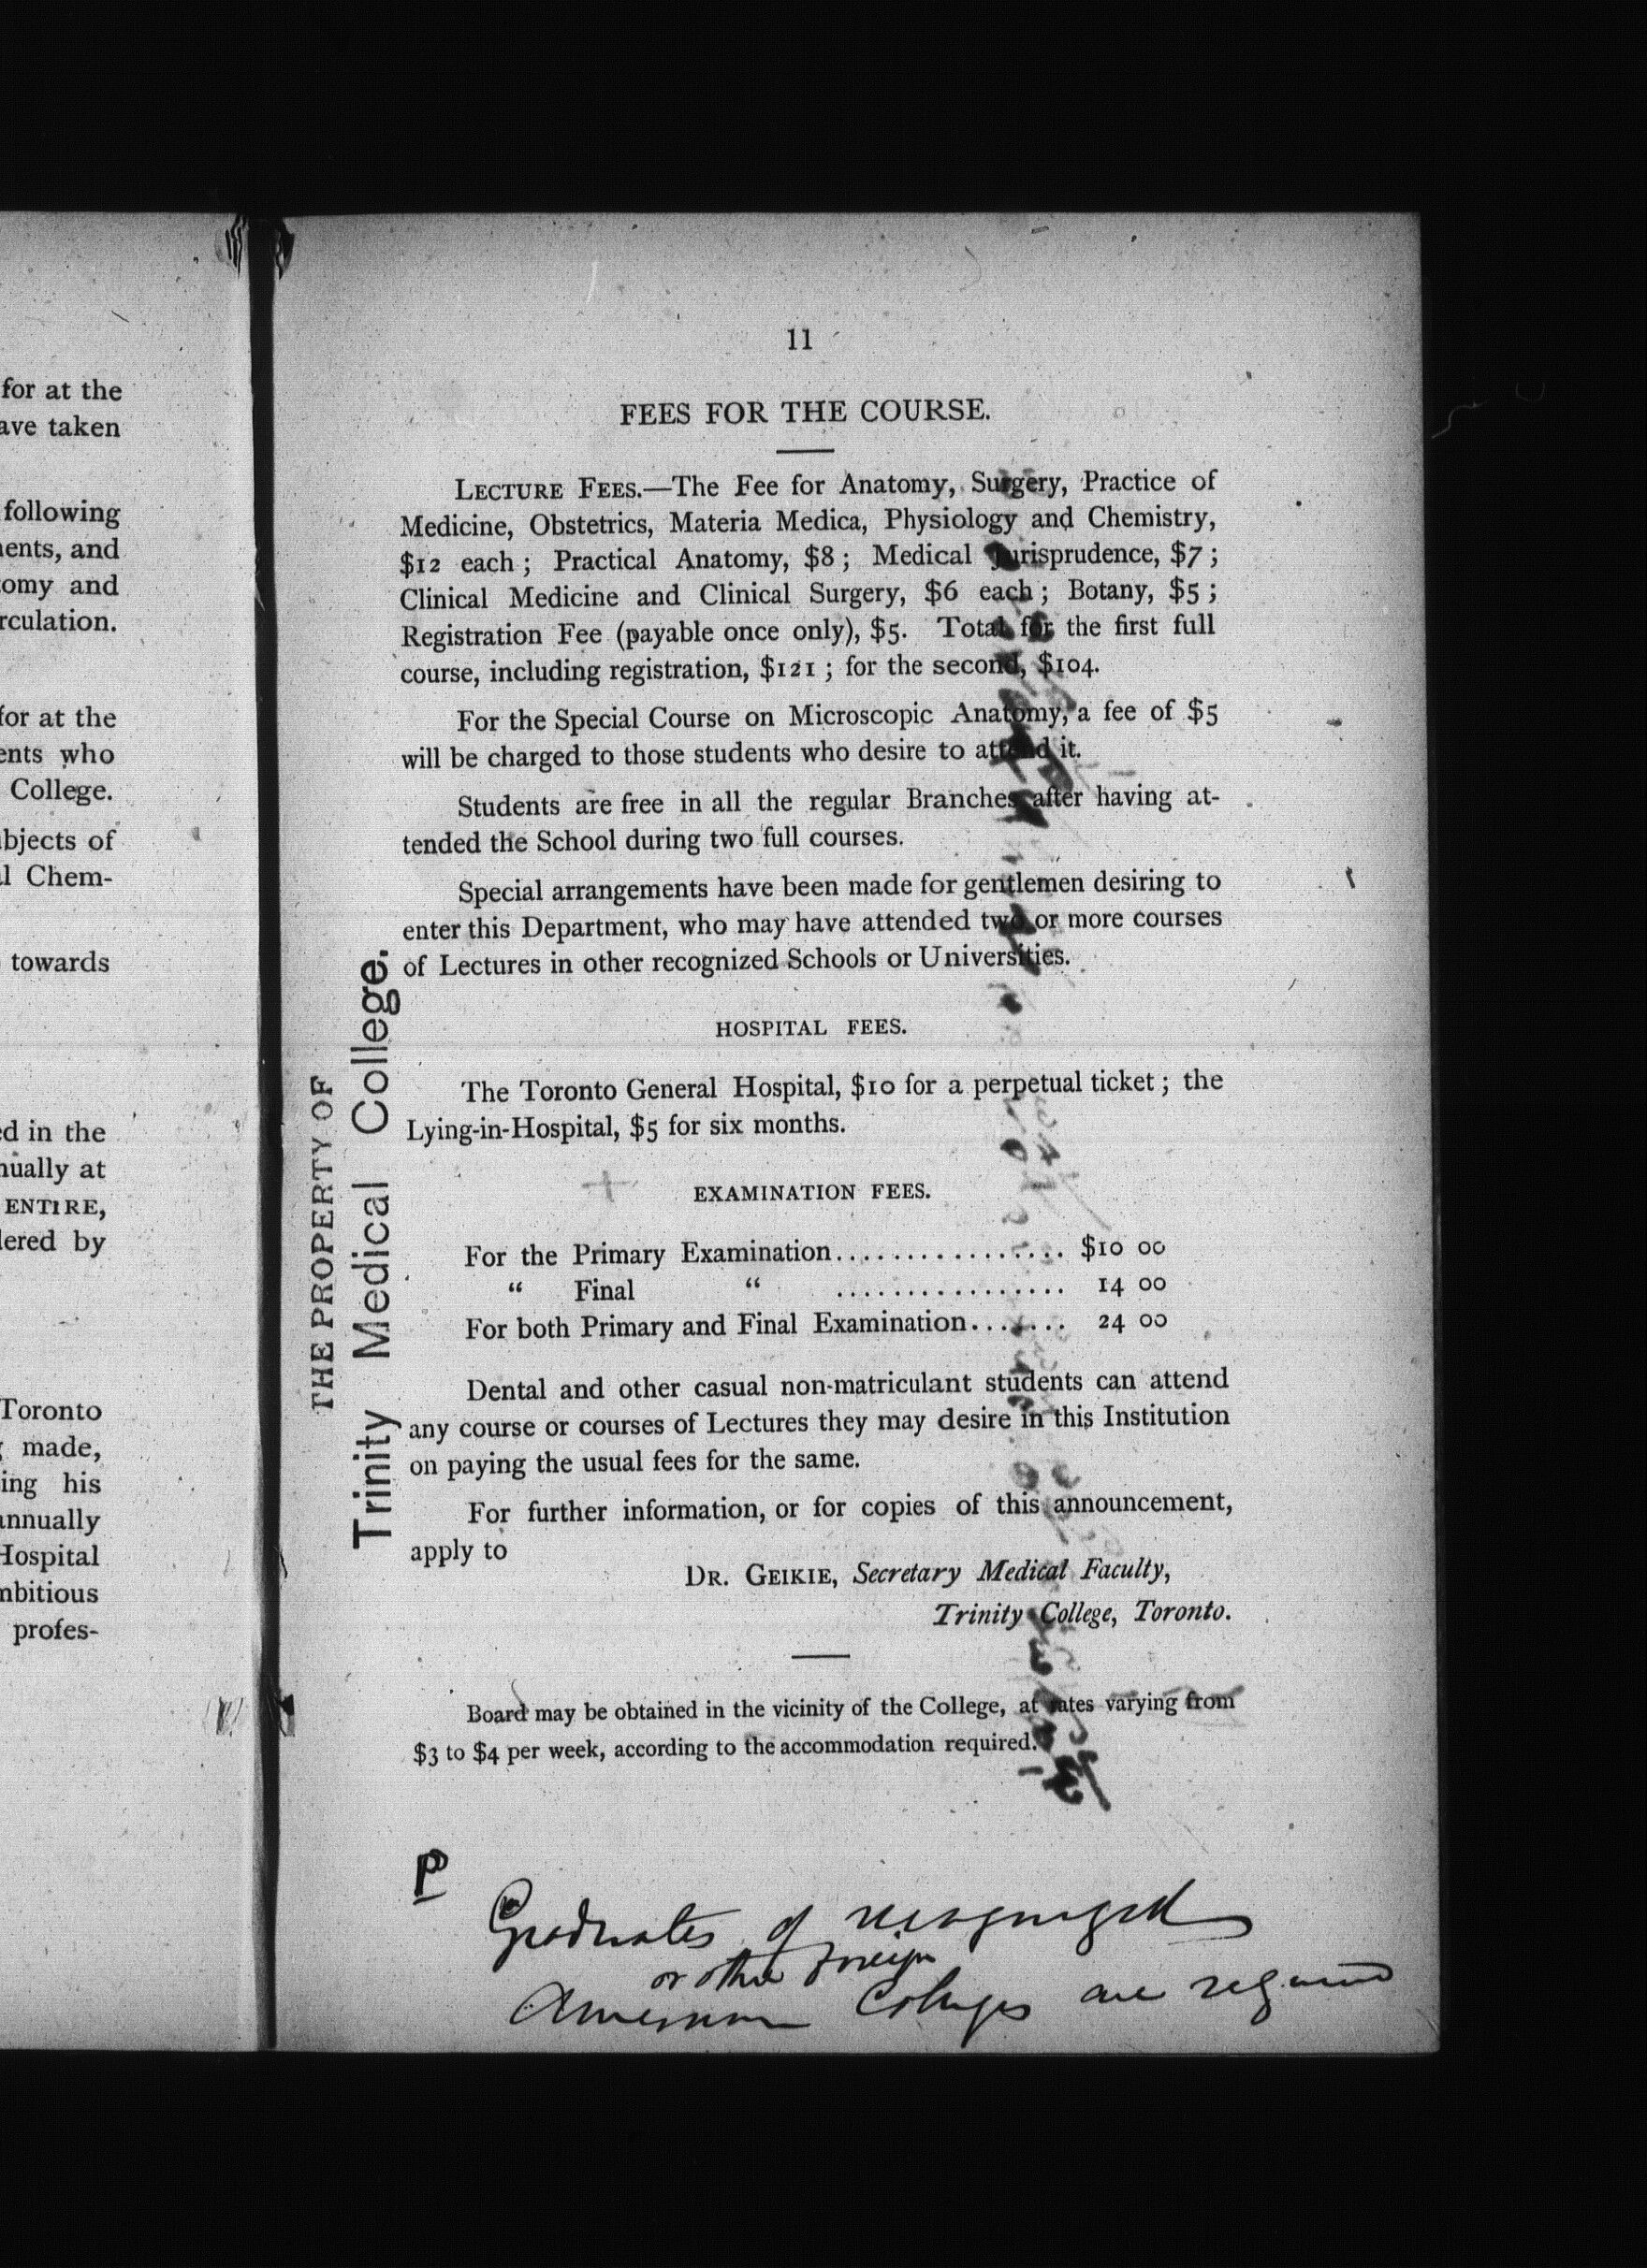 for at the
ave taken
following
ents, and
omy and
rculation.
for at the
ents who
College.
bjects of
l Chem-
towards
ed in the
nually at
ENTIRE,
lered by
Toronto
made,
ing his
annually
Hospital
mbitious
profes-
11
FEES FOR THE COURSE.
LECTURE FEES.—The Fee for Anatomy, Surgery, Practice of
Medicine, Obstetrics, Materia Medica, Physiology and Chemistry,
$12 each; Practical Anatomy, $8; Medical Jurisprudence, $7;
Clinical Medicine and Clinical Surgery, $6 each; Botany, $5;
Registration Fee (payable once only), $5. Total for the first full
course, including registration, $121; for the second, $104.
For the Special Course on Microscopic Anatomy, a fee of $5
will be charged to those students who desire to attend it.
Students are free in all the regular Branches after having at-
tended the School during two full courses.
Special arrangements have been made for gentlemen desiring to
enter this Department, who may have attended two or more courses
of Lectures in other recognized Schools or Universities.
HOSPITAL FEES.
The Toronto General Hospital, $10 for a perpetual ticket; the
Lying-in-Hospital, $5 for six months.
EXAMINATION FEES.
For the Primary Examination................ $10 00
“ Final “ ................ 14 00
For both Primary and Final Examination....... 24 00
Dental and other casual non-matriculant students can attend
any course or courses of Lectures they may desire in this Institution
on paying the usual fees for the same.
For further information, or for copies of this announcement,
apply to
DR. GEIKIE, Secretary Medical Faculty,
Trinity College, Toronto.
Board may be obtained in the vicinity of the College, at rates varying from
$3 to $4 per week, according to the accommodation required.
THE PROPERTY OF
Trinity Medical College.
P
Graduates of recognized
or other foreign
American Colleges are required